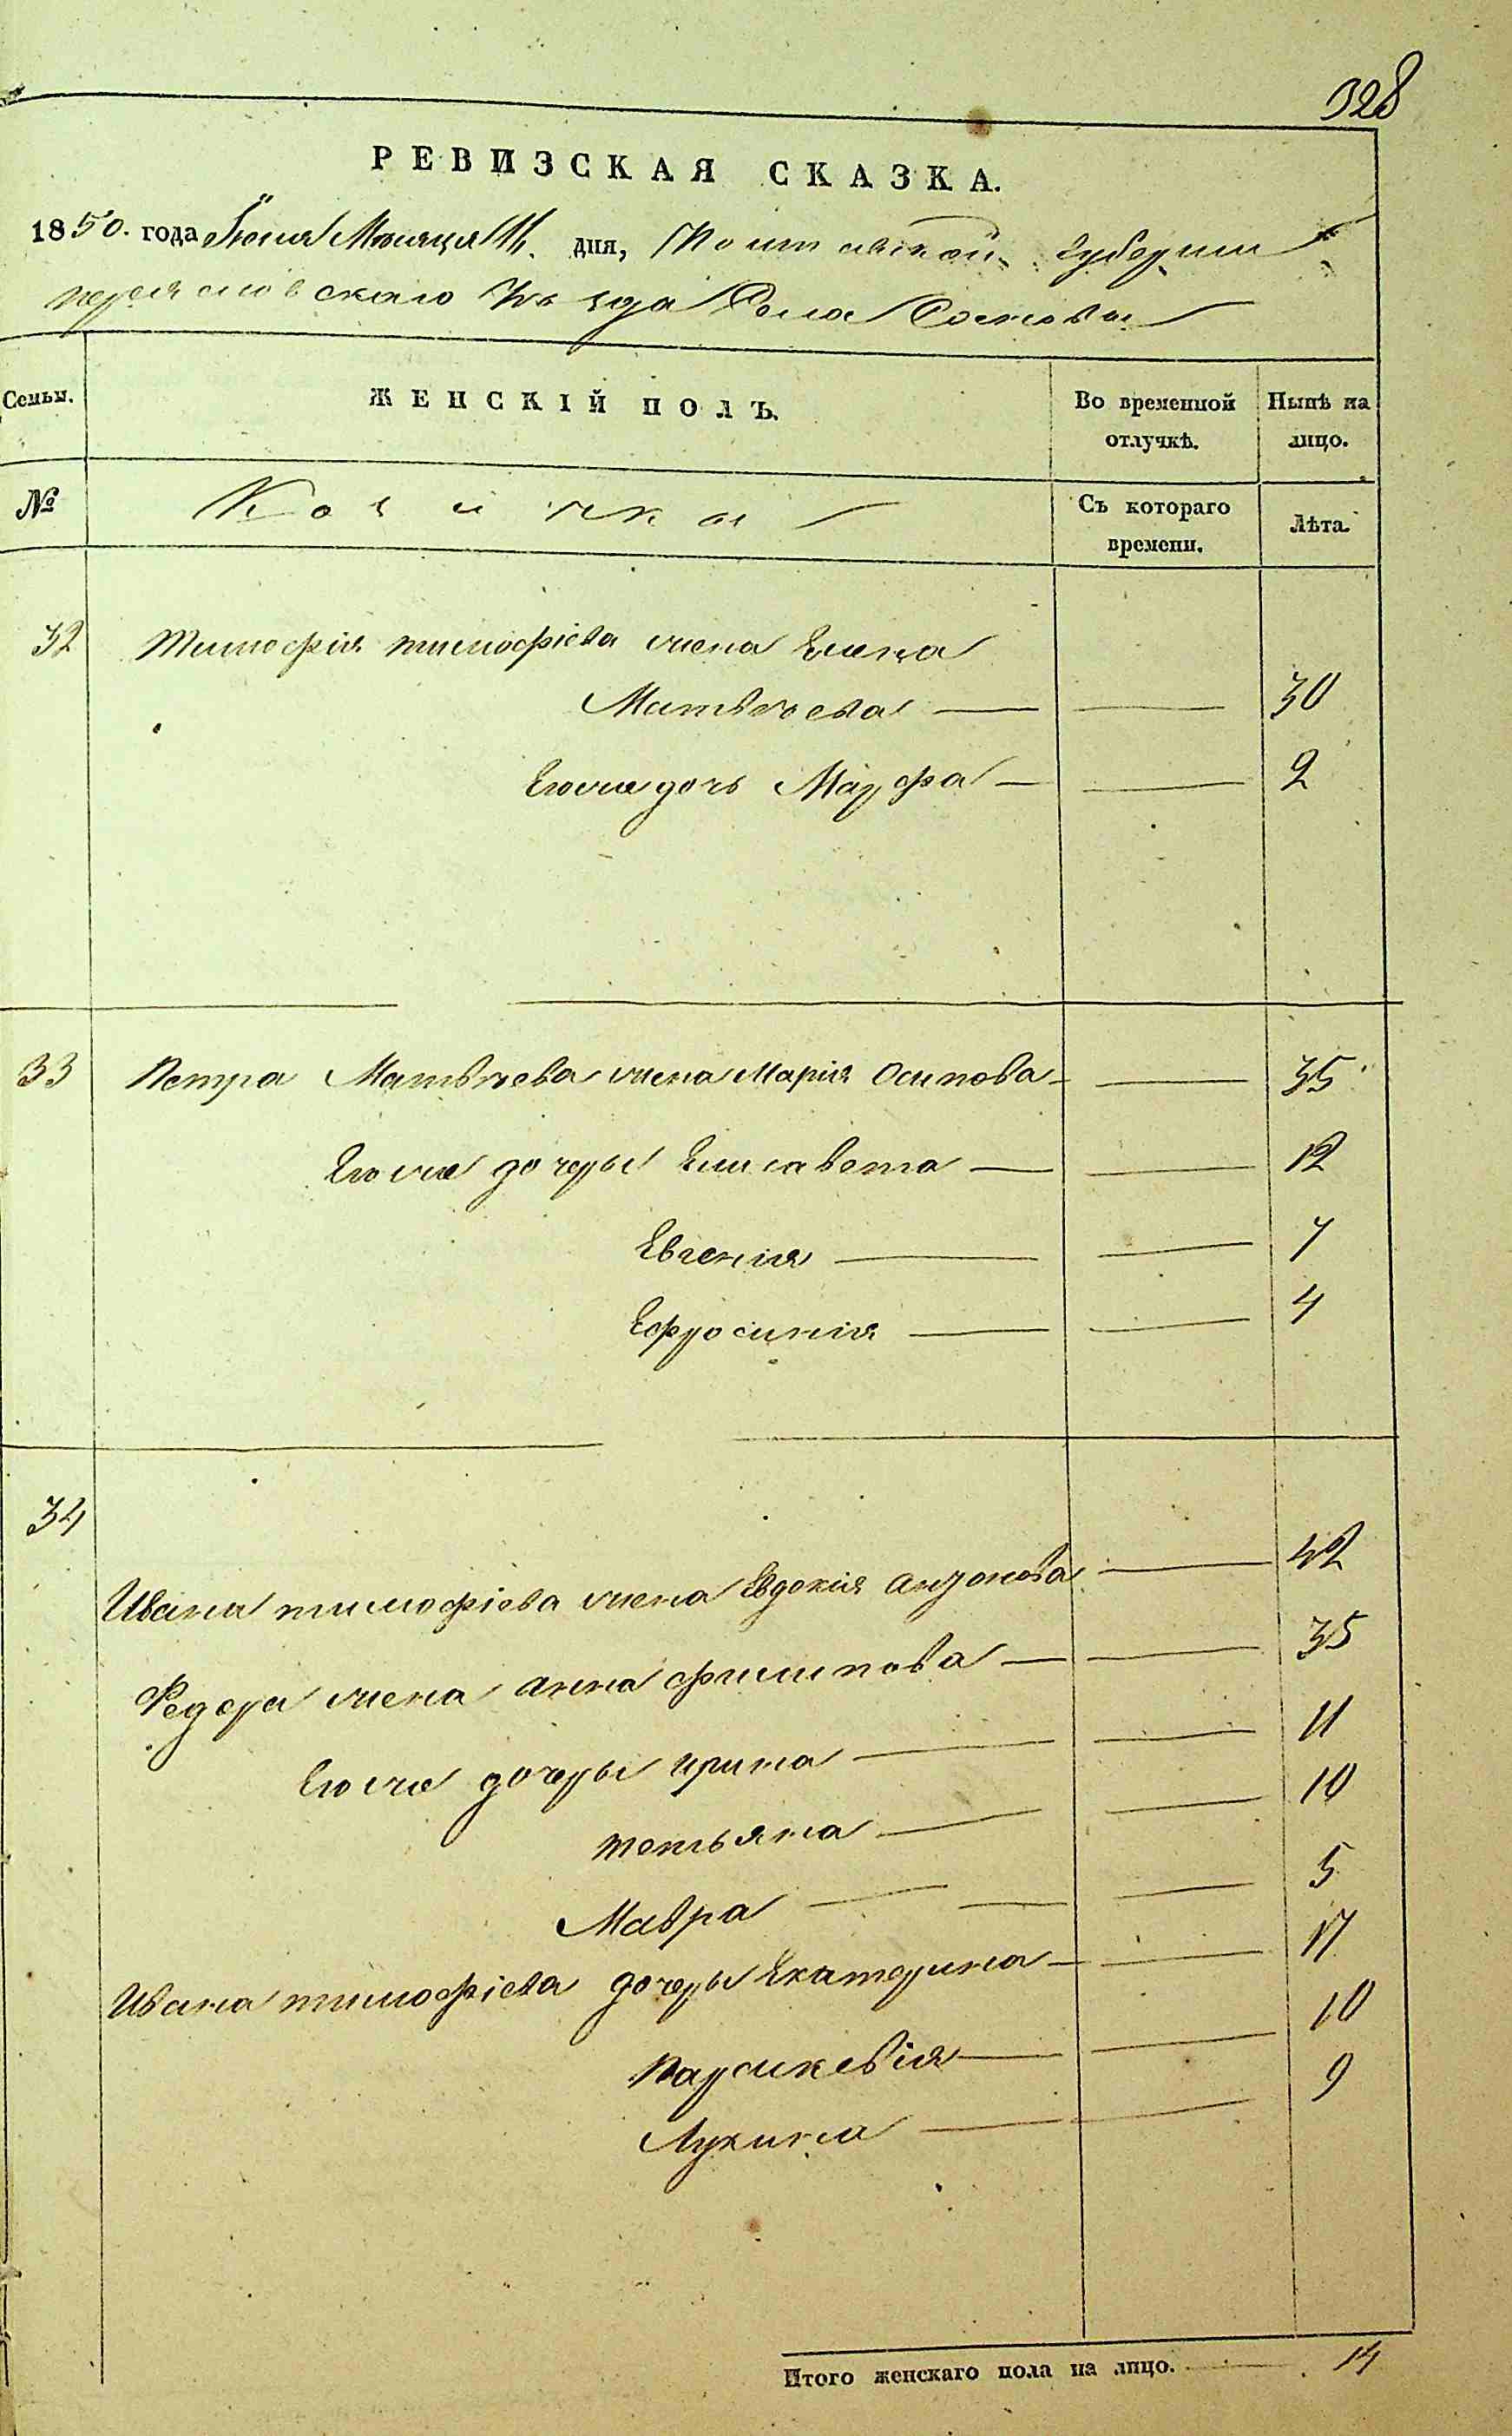 328
РЕВИЗСКАЯ СКАЗКА.
1850. года Іюля Месяца дня, Полтавской губерніи
переяславскаго уезда Села Сосновы
Семьи. ЖЕНСКІЙ ПОЛЪ. Во временной отлучкѣ. Нынѣ на лицо.
№ Козачки Съ котораго времени. Лѣта.
32 тимофія тимофіева жена Елена
Матвѣева 30
Егоже дочь Марфа 2
33 Петра Матвѣева жена Марія Осипова 35
Егоже дочеры Елисавета 12
Евгенія 7
Ефросинія 4
34
Ивана тимофіева жена Евдокія 42
Федора жена анна филипова 35
Егоже дочеры ирина 11
тетьяна 10
Мавра 5
Ивана тимофіева дочеры Екатерина 17
Параскевія 10
Лукина 9
Итого женскаго пола на лицо. 14